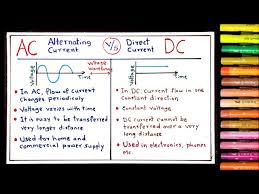 AC Alternating Current V/s Direct Current DC
Voltage Voltage wave form Voltage
Time Time
• In AC, flow of current changes periodicaly
• Voltage varies with time
• It is easy to be transferred very longer distance
• Used for home and commercial power supply
• In DC, current flow in one constant direction
• Constant voltage
• DC current cannot be transferred over a very long distance
• Used in electronics, phones etc.